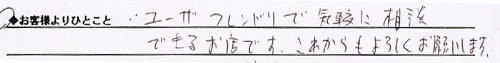 ◆お客様よりひとこと ：ユーザフレンドリで気軽に相談
できるお店です。これからもよろしくお願いします。